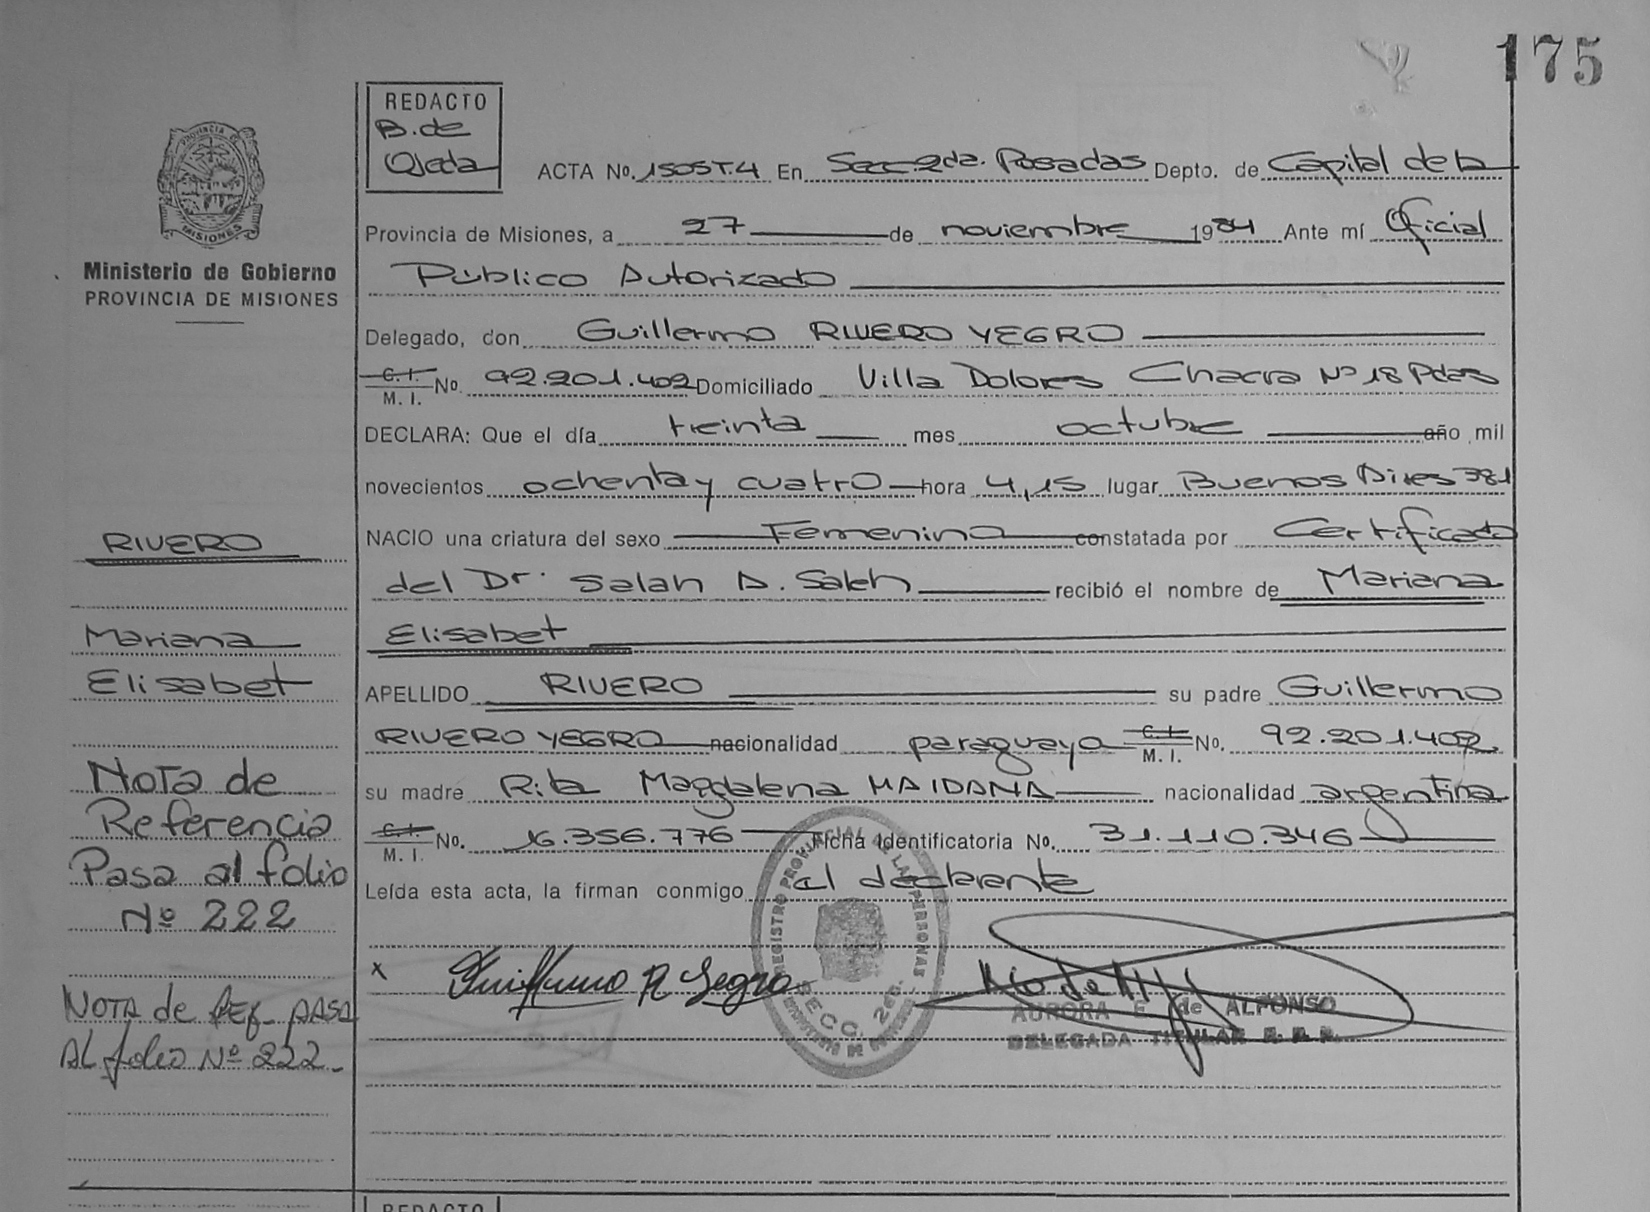 175
REDACTO
B. de
Ojeda
ACTA No. 1505T.4 En Secc. 2da. Posadas Depto. de Capital de la
Provincia de Misiones, a 27 de noviembre 1984 Ante mí Oficial
Público Autorizado
Delegado, don Guillermo RIVERO YEGRO
C. I. M. I. No. 92.201.402 Domiciliado Villa Dolores Chacra Nº 18 Pdas
DECLARA: Que el día treinta mes octubre año mil
novecientos ochenta y cuatro hora 4,15 lugar Buenos Aires 381
NACIO una criatura del sexo Femenino constatada por Certificado
del Dr. Salah A. Saleh recibió el nombre de Mariana
Elisabet
APELLIDO RIVERO su padre Guillermo
RIVERO YEGRO nacionalidad paraguaya C. I. M. I. No. 92.201.402
su madre Rita Magdalena MAIDANA nacionalidad argentina
C. I. M. I. No. 16.356.776 Ficha Identificatoria No. 31.110.346
Leída esta acta, la firman conmigo el declarante
x Guillermo R Yegro
AURORA E. de ALFONSO
DELEGADA TITULAR R. P. P.
REGISTRO PROVINCIAL DE LAS PERSONAS
SECC. 2da.
PROVINCIA DE
MISIONES
Ministerio de Gobierno
PROVINCIA DE MISIONES
RIVERO
Mariana
Elisabet
Nota de
Referencia
Pasa al folio
Nº 222
NOTA de REF. PASA
AL folio Nº 222.
REDACTO